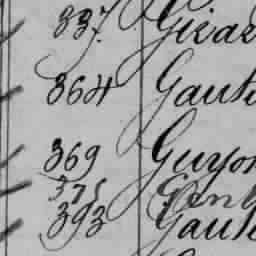 337. Girar
364 Gauti
369 Guyon
375 Gen
393 Gauti